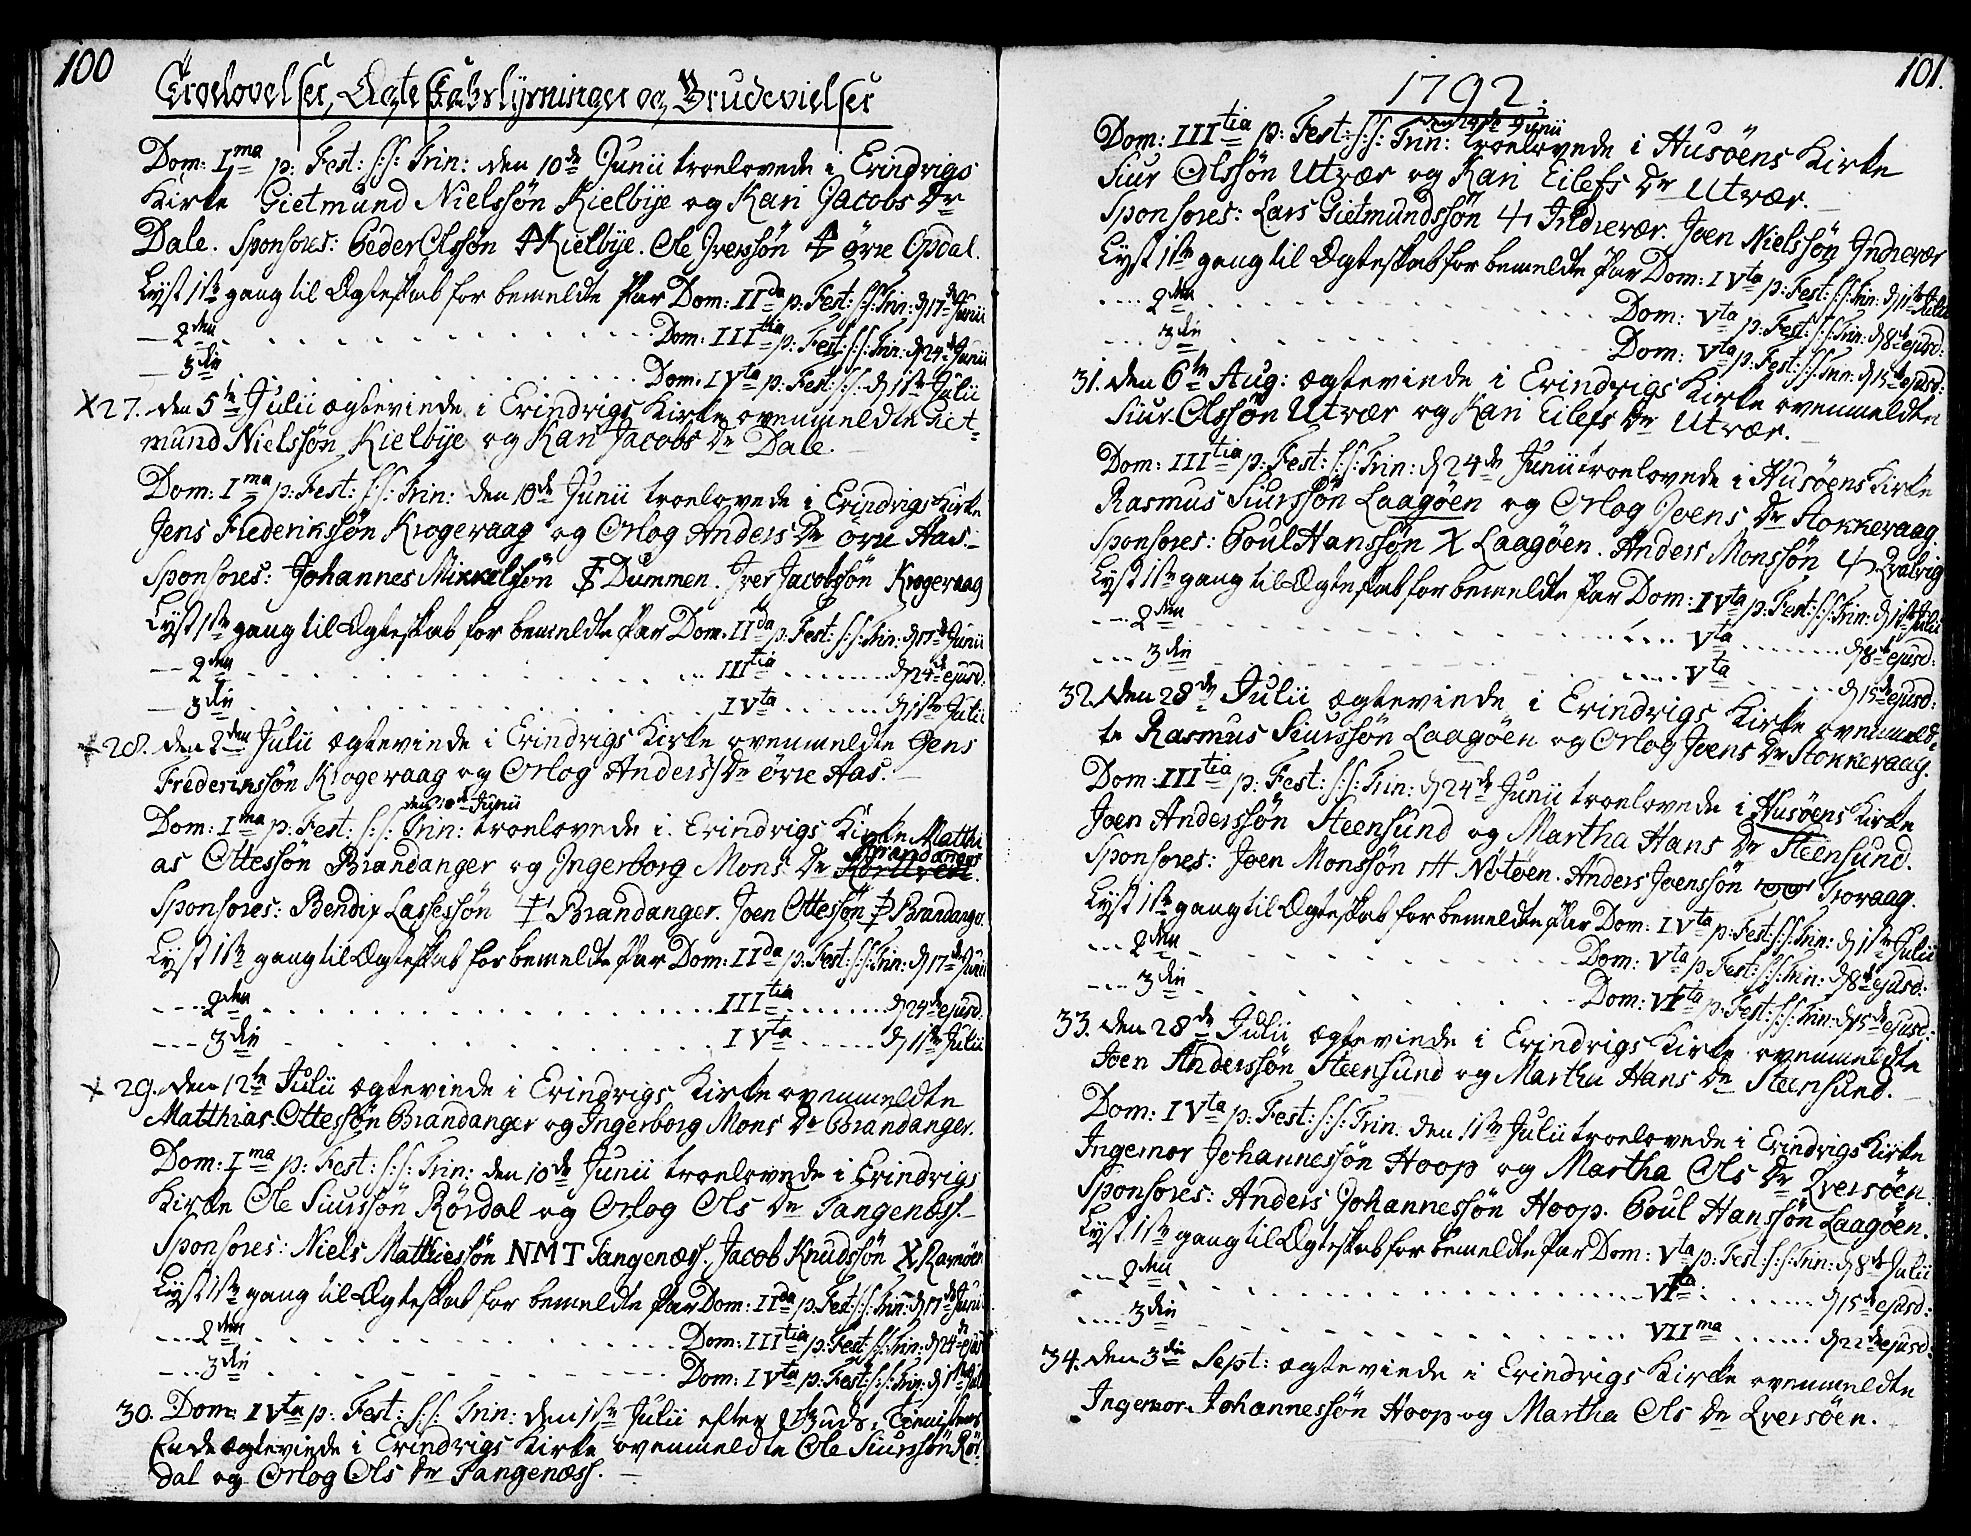 100
Troelovelser, Ægteskabslysninger og Brudevielser
Dom: I ma p: Fest: s:s: Trin: den 10de Junii troelovede i Erindrigs
Kirke Gietmund Nielssøn Kielbye og Kari Jacobs Dr
Dale. Sponsores: Peder Olssøn Kielbye. Ole Iverssøn øvre Opdal.
Lyst 1ste gang til Ægteskab for bemeldte Par Dom: II da p: Fest: s:s: Trin: d 17de Junii
— 2den . . . . Dom: III tia p: Fest: s:s: Trin: d 24de Junii
— 3die . . . . Dom: IV ta p: Fest: s:s: d 1ste Julii
X 27. den 5te Julii ægteviede i Erindrigs Kirke ovenmeldte Giet-
mund Nielssøn Kielbye og Kari Jacobs Dr Dale. —
Dom: I ma p: Fest: s:s: Trin: den 10de Junii troelovede i Erindrigs Kirke
Jens Frederikssøn Krogevaag og Orlog Anders Dr øvre Aas. —
Sponsores: Johannes Mikkelssøn Dummen. Iver Jacobssøn Krogevaag
Lyst 1ste gang til Ægteskab for bemeldte Par Dom: II da p: Fest: s:s: Trin: d 17de Junii
— 2den . . . . III tia . . . . d 24de ejusd:
— 3die . . . . IV ta . . . . d 1ste Julii
X 28. den 2den Julii ægteviede i Erindrigs Kirke ovenmeldte Jens
Frederikssøn Krogevaag og Orlog Anders Dr øvre Aas. —
den 10de Junii
Dom: I ma p: Fest: s:s: Trin: troelovede i Erindrigs Kirke Matthi
Brandanger
as Ottessøn Brandanger og Ingerborg Mons Dr
Sponsores: Bendix Lassessøn Brandanger. Joen Ottessøn Brandanger.
Lyst 1ste gang til Ægteskab for bemeldte Par Dom: II da p: Fest: s:s: Trin: d 17de Junii
— 2den . . . . III tia . . . . d 24de ejusd.
— 3die . . . . IV ta . . . . d 1ste Julii
X 29. den 12te Julii ægteviede i Erindrigs Kirke ovenmeldte
Matthias Ottessøn Brandanger og Ingerborg Mons Dr Brandanger.
Dom: I ma p: Fest: s:s: Trin: den 10de Junii troelovede i Erindrigs
Kirke Ole Siurssøn Rørdal og Orlog Ols Dr Tangenæss. —
Sponsores: Niels Matthiessøn NMT Tangenæss. Jacob Knudssøn X Ramøen
Lyst 1ste gang til Ægteskab for bemeldte Par Dom: II da p: Fest: s:s: Trin: d 17de Junii
— 2den . . . . Dom: III tia p: Fest: s:s: Trin: d 24de ejusd
— 3die . . . . Dom: IV ta p: Fest: s:s: Trin: d 1ste Juli
30. Dom: IV ta p: Fest: s:s: Trin: den 1ste Julii efter Guds Tienistens
Ende ægteviede i Erindrigs Kirke ovenmeldte Ole Siurssøn Rør-
dal og Orlog Ols Dr Tangenæss. —
101.
1792.
den 24de Junii
Dom: III tia p: Fest: s:s: Trin: troelovede i Husøens Kirke
Siur Olssøn Utvær og Kari Eilefs Dr Utvær. —
Sponsores: Lars Gietmundssøn Indrevær. Joen Nielssøn Indrevær
Lyst 1ste gang til Ægteskab for bemeldte Par Dom: IV ta p: Fest: s:s: Trin: d 1ste Julii
— 2den . . . . Dom: V ta p: Fest: s:s: Trin: d 8de ejusd:
— 3die . . . . Dom: V ta p: Fest: s:s: Trin: d 15de ejusd:
31. den 6te Aug: ægteviede i Erindrigs Kirke ovenmeldte
Siur Olssøn Utvær og Kari Eilefs Dr Utvær. —
Dom: III tia p: Fest: s:s: Trin: d 24de Junii troelovede i Husøens Kirke
Rasmus Siurssøn Laagøen og Orlog Joens Dr Stokkevaag.
Sponsores: Poul Hanssøn X Laagøen. Anders Monssøn Qvalvig
Lyst 1ste gang til Ægteskab for bemeldte Par Dom: IV ta p: Fest: s:s: Trin: d 1ste Julii
— 2den . . . . V ta . . . . d 8de ejusd:
— 3die . . . . V ta . . . . d 15de ejusd:
32. den 28de Julii ægteviede i Erindrigs Kirke ovenmeld-
te Rasmus Siurssøn Laagøen og Orlog Joens Dr Stokkevaag.
Dom: III tia p: Fest: s:s: Trin: d 24de Junii troelovede i Husøens Kirke
Joen Anderssøn Steensund og Martha Hans Dr Steensund.
Sponsores: Joen Monssøn Nótøen. Anders Joenssøn Trovaag.
Lyst 1ste gang til Ægteskab for bemeldte Par Dom: IV ta p: Fest: s:s: Trin: d 1ste Julii
— 2den . . . . Dom: V ta p: Fest: s:s: Trin: d 8de ejusd:
— 3die . . . . Dom: VI ta p: Fest: s:s: Trin: d 15de ejusd:
33. den 28de Julii ægteviede i Erindrigs Kirke ovenmeldte
Joen Anderssøn Steensund og Martha Hans Dr Steensund. —
Dom: IV ta p: Fest: s:s: Trin. den 1ste Julii troelovede i Erindrigs Kirke
Ingemor Johannessøn Hoop og Martha Ols Dr Qversøen.
Sponsores: Anders Johannessøn Hoop. Poul Hanssøn Laagøen.
Lyst 1ste gang til Ægteskab for bemeldte Par Dom: V ta p: Fest: s:s: Trin: d 8de Julii
— 2den . . . . VI ta . . . . d 15de ejusd:
— 3die . . . . VII ma . . . . d 22de ejusd:
34. den 3die Sept: ægteviede i Erindrigs Kirke ovenmeldte
Ingemor Johannessøn Hoop og Martha Ols Dr Qversøen. —